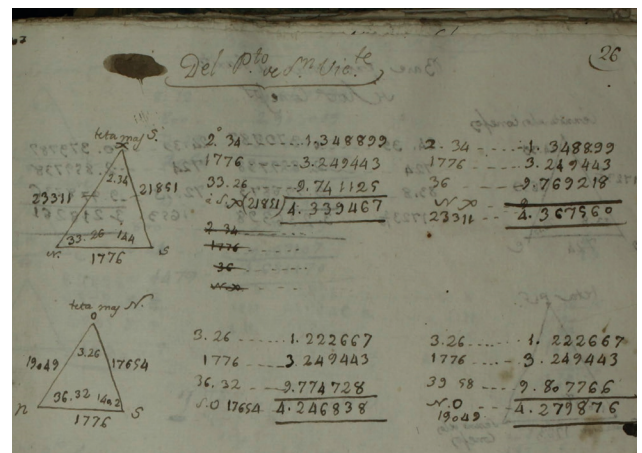 26
Del P.to de Sn. Vic.te
teta maj S.
2.34
23311
21851
33.26
144
N.
S
1776
2. 34 1,348899
1776 3.249443
33.26 9.741125
(21851) 4.339467
2.34
1776
36
2. 34 1.348899
1776 3.249443
36 9.769218
23311 4.367560
teta maj N.
O
3.26
19049
17654
36.32
n
S
1776
3.26 1.222667
1776 3.249443
36.32 9.774728
N.O 17654 4.246838
3.26 1.222667
1776 3.249443
39 58 9.807766
N.O 4.279876
19049